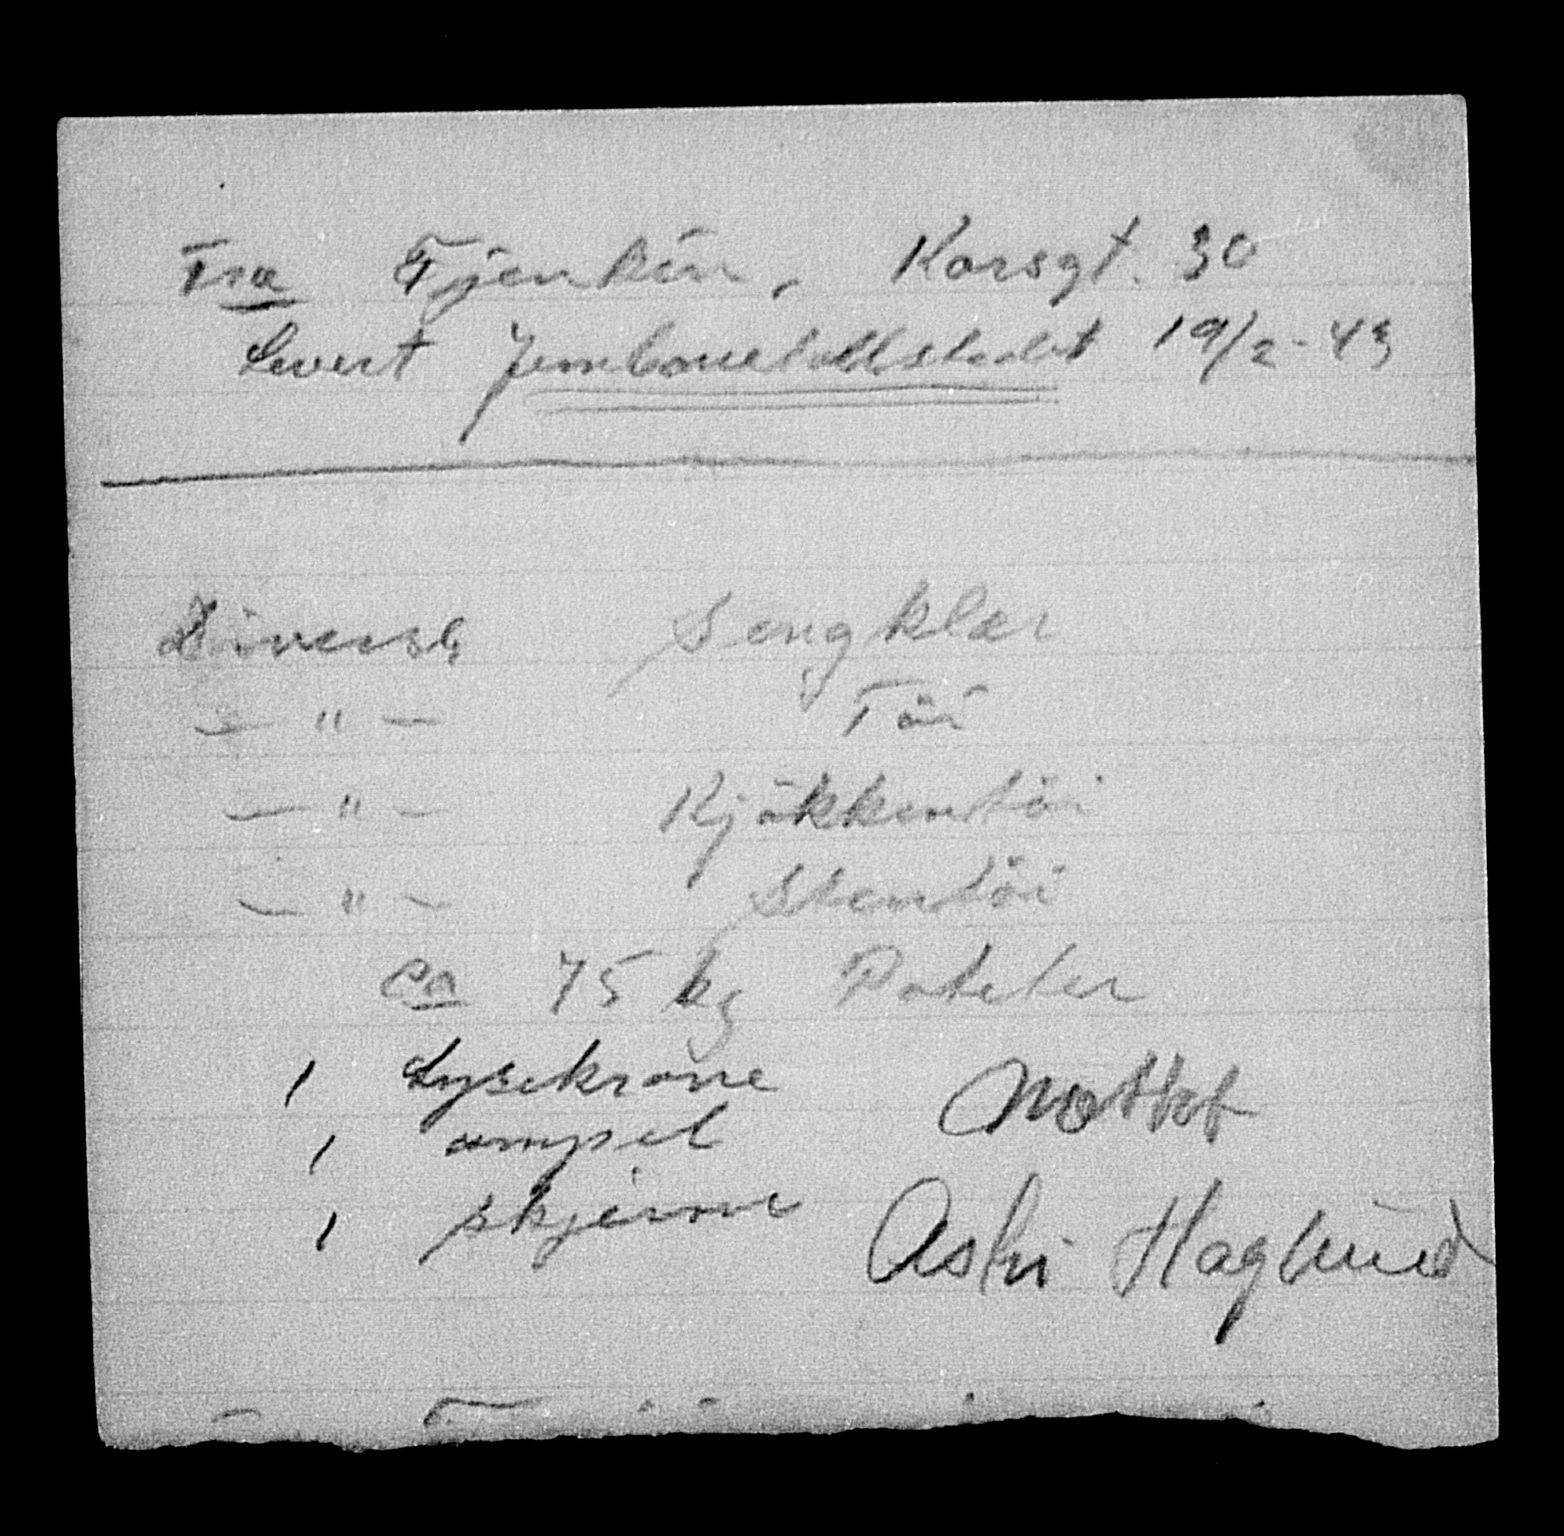 Fra Fjenkin, Korsgt. 30
Levert Jernbanetollstedet 19/2-43
Diverse Sengklær
— " — Töi
— " — Kjökkentöi
— " — Stentöi
ca 75 kg Poteter
1 Lysekrone
1 ampel
1 skjerm
Mottat
Haglund